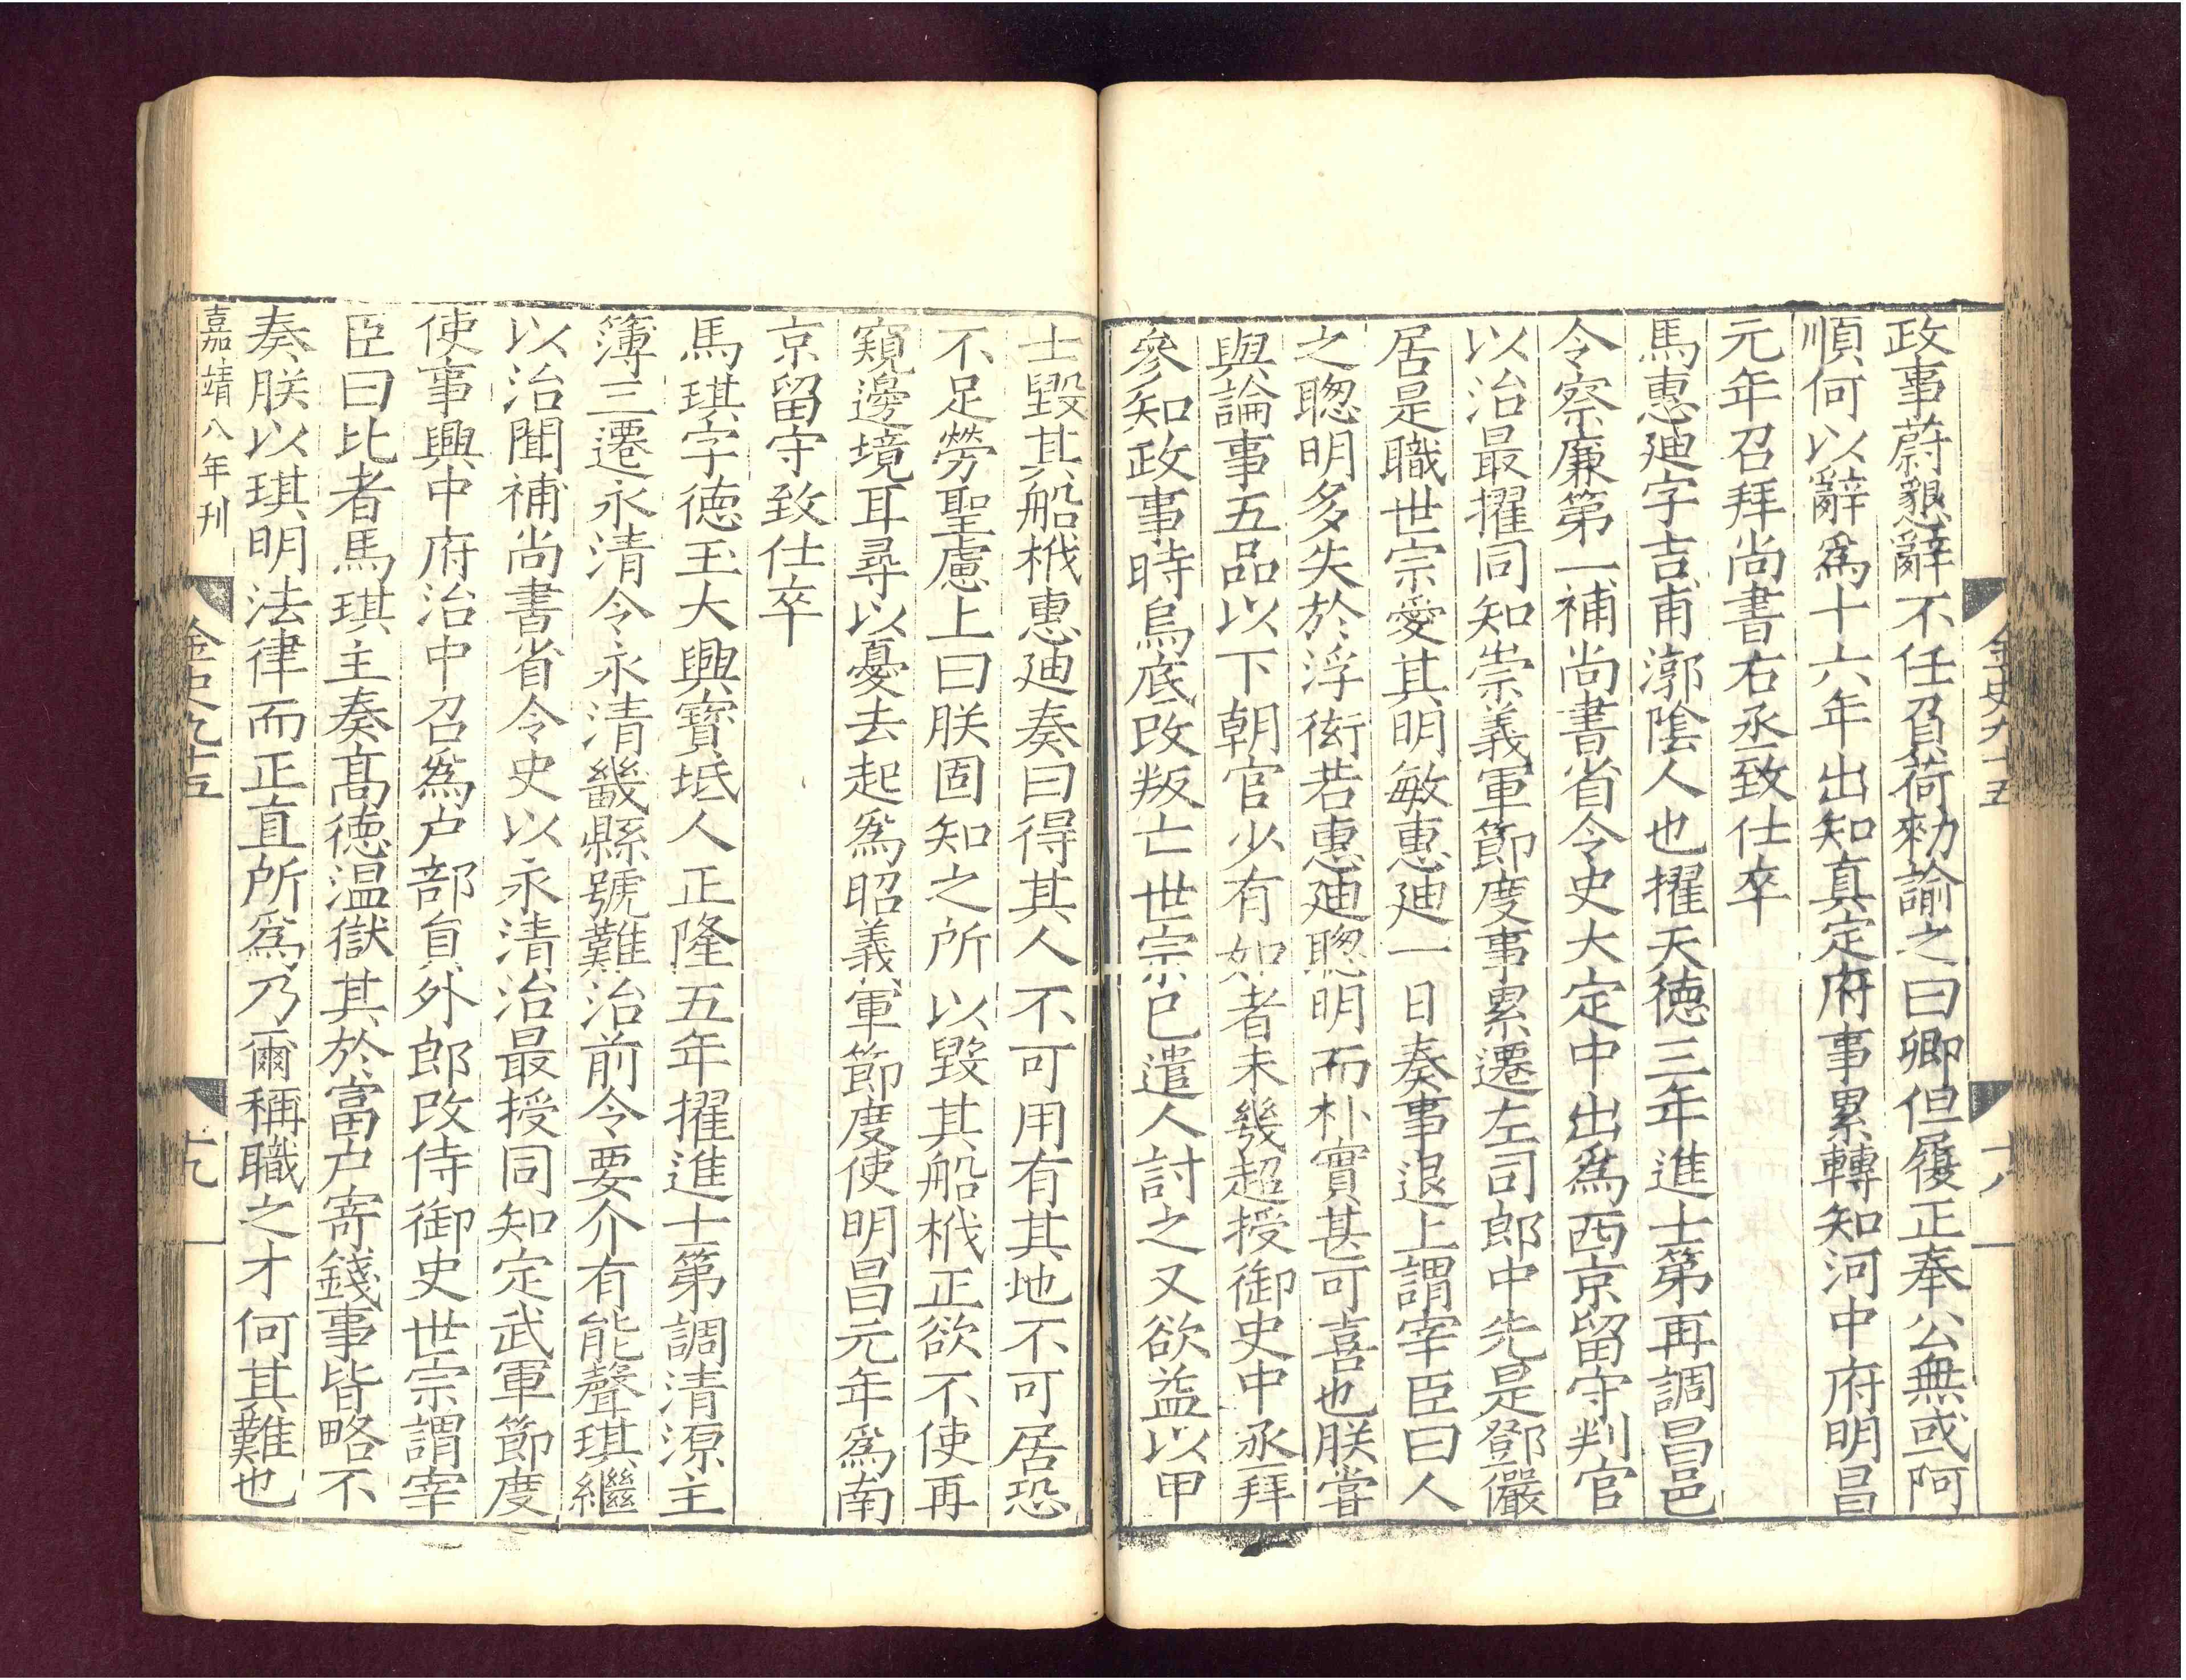 金史九十五
十八
政事蔚懇辭不任負荷勑諭之曰卿但履正奉公無或阿
順何以辭爲十六年出知真定府事累轉知河中府明昌
元年召拜尚書右丞致仕卒
馬惠廸字吉甫漷陰人也擢天德三年進士第再調昌邑
令察廉第一補尚書省令史大定中出爲西京留守判官
以治最擢同知崇義軍節度事累遷左司郎中先是鄧儼
居是職世宗愛其明敏惠廸一日奏事退上謂宰臣曰人
之聰明多失於浮衒若惠廸聰明而朴實甚可喜也朕嘗
與論事五品以下朝官少有如者未幾超授御史中丞拜
參知政事時烏底改叛亡世宗已遣人討之又欲益以甲
士毀其船栰惠廸奏曰得其人不可用有其地不可居恐
不足勞聖慮上曰朕固知之所以毀其船栰正欲不使再
窺邊境耳尋以憂去起爲昭義軍節度使明昌元年爲南
京留守致仕卒
馬琪字德玉大興寶坻人正隆五年擢進士第調清源主
簿三遷永清令永清畿縣號難治前令要介有能聲琪繼
以治聞補尚書省令史以永清治最授同知定武軍節度
使事興中府治中召爲户部負外郎改侍御史世宗謂宰
臣曰比者馬琪主奏高德温獄其於富户寄錢事皆略不
奏朕以琪明法律而正直所爲乃爾稱職之才何其難也
嘉靖八年刊
金史九十五
十九